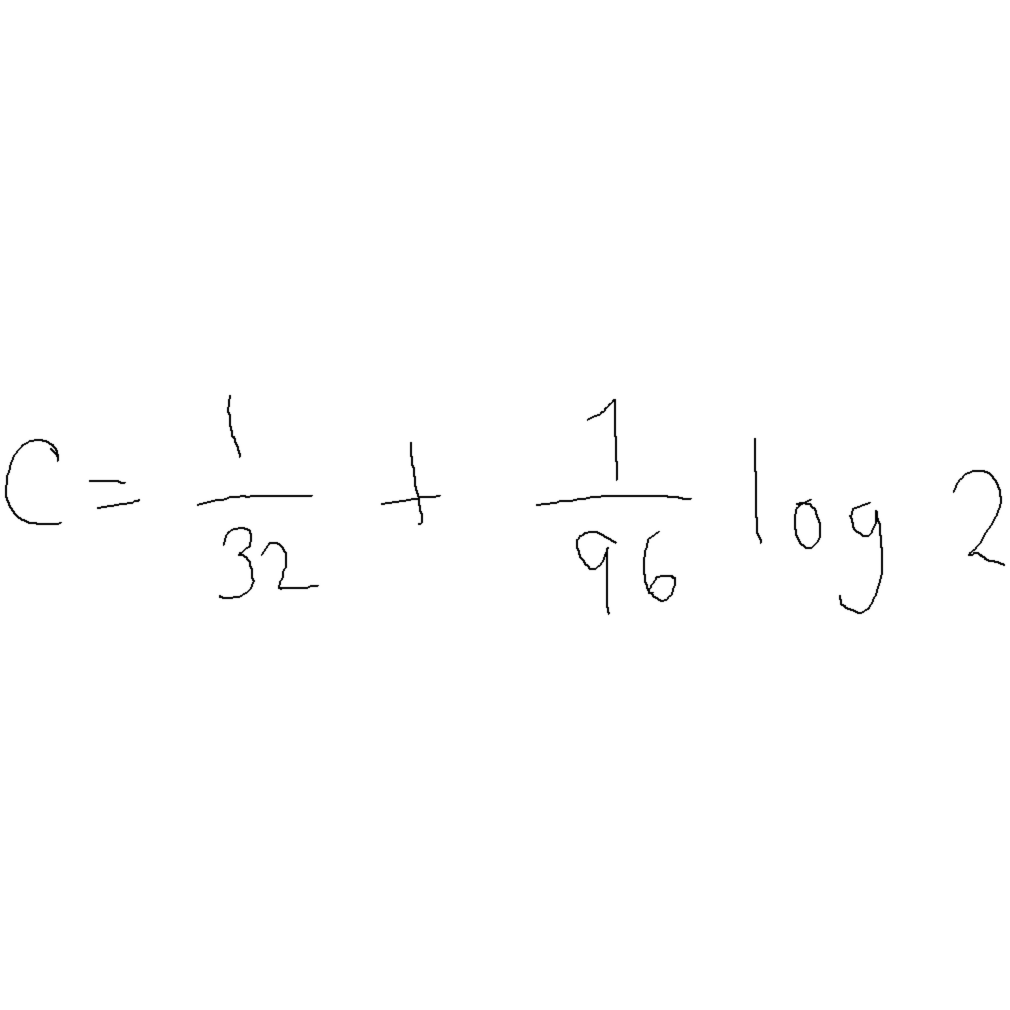 C = 1/32 + 1/96 log 2